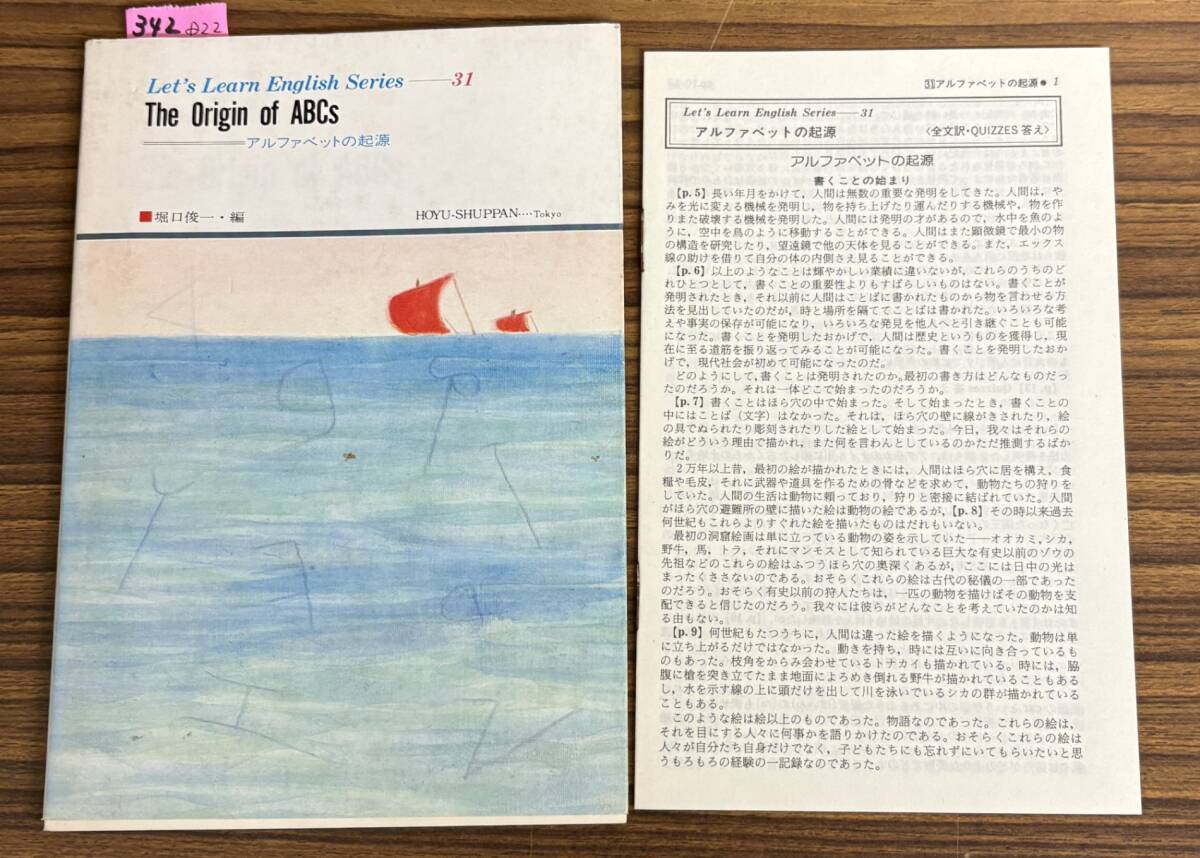 342 A22
Let's Learn English Series——31
The Origin of ABCs
——アルファベットの起源
■堀口俊一・編
HOYU-SHUPPAN····Tokyo
31アルファベットの起源● 1
Let's Learn English Series——31
アルファベットの起源
〈全文訳・QUIZZES 答え〉
アルファベットの起源
書くことの始まり
【p.5】長い年月をかけて，人間は無数の重要な発明をしてきた。人間は，や
みを光に変える機械を発明し，物を持ち上げたり運んだりする機械や，物を作
りまた破壊する機械を発明した。人間には発明の才があるので，水中を魚のよ
うに，空中を鳥のように移動することができる。人間はまた顕微鏡で最小の物
の構造を研究したり，望遠鏡で他の天体を見ることができる。また，エックス
線の助けを借りて自分の体の内側さえ見ることができる。
【p.6】以上のようなことは輝やかしい業績に違いないが，これらのうちのど
れひとつとして，書くことの重要性よりもすばらしいものはない。書くことが
発明されたとき，それ以前に人間はことばに書かれたものから物を言わせる方
法を見出していたのだが，時と場所を隔ててことばは書かれた。いろいろな考
えや事実の保存が可能になり，いろいろな発見を他人へと引き継ぐことも可能
になった。書くことを発明したおかげで，人間は歴史というものを獲得し，現
在に至る道筋を振り返ってみることが可能になった。書くことを発明したおか
げで，現代社会が初めて可能になったのだ。
どのようにして，書くことは発明されたのか。最初の書き方はどんなものだっ
たのだろうか。それは一体どこで始まったのだろうか。
【p.7】書くことはほら穴の中で始まった。そして始まったとき，書くことの
中にはことば（文字）はなかった。それは，ほら穴の壁に線がきされたり，絵
の具でぬられたり彫刻されたりした絵として始まった。今日，我々はそれらの
絵がどういう理由で描かれ，また何を言わんとしているのかただ推測するばか
りだ。
2万年以上昔，最初の絵が描かれたときには，人間はほら穴に居を構え，食
糧や毛皮，それに武器や道具を作るための骨などを求めて，動物たちの狩りを
していた。人間の生活は動物に頼っており，狩りと密接に結ばれていた。人間
がほら穴の避難所の壁に描いた絵は動物の絵であるが，【p.8】その時以来過去
何世紀もこれらよりすぐれた絵を描いたものはだれもいない。
最初の洞窟絵画は単に立っている動物の姿を示していた——オオカミ，シカ，
野牛，馬，トラ，それにマンモスとして知られている巨大な有史以前のゾウの
先祖などのこれらの絵はふつうほら穴の奥深くあるが，ここには日中の光は
まったくささないのである。おそらくこれらの絵は古代の秘儀の一部であった
のだろう。おそらく有史以前の狩人たちは，一匹の動物を描けばその動物を支
配できると信じたのだろう。我々には彼らがどんなことを考えていたのかは知
る由もない。
【p.9】何世紀もたつうちに，人間は違った絵を描くようになった。動物は単
に立ち上がるだけではなかった。動きを持ち，時には互いに向き合っているも
のもあった。枝角をからみ合わせているトナカイも描かれている。時には，脇
腹に槍を突き立てたまま地面によろめき倒れる野牛が描かれていることもある
し，水を示す線の上に頭だけを出して川を泳いでいるシカの群が描かれている
こともある。
このような絵は絵以上のものであった。物語なのであった。これらの絵は，
それを目にする人々に何事かを語りかけたのである。おそらくこれらの絵は
人々が自分たち自身だけでなく，子どもたちにも忘れずにいてもらいたいと思
うもろもろの経験の一記録なのであった。